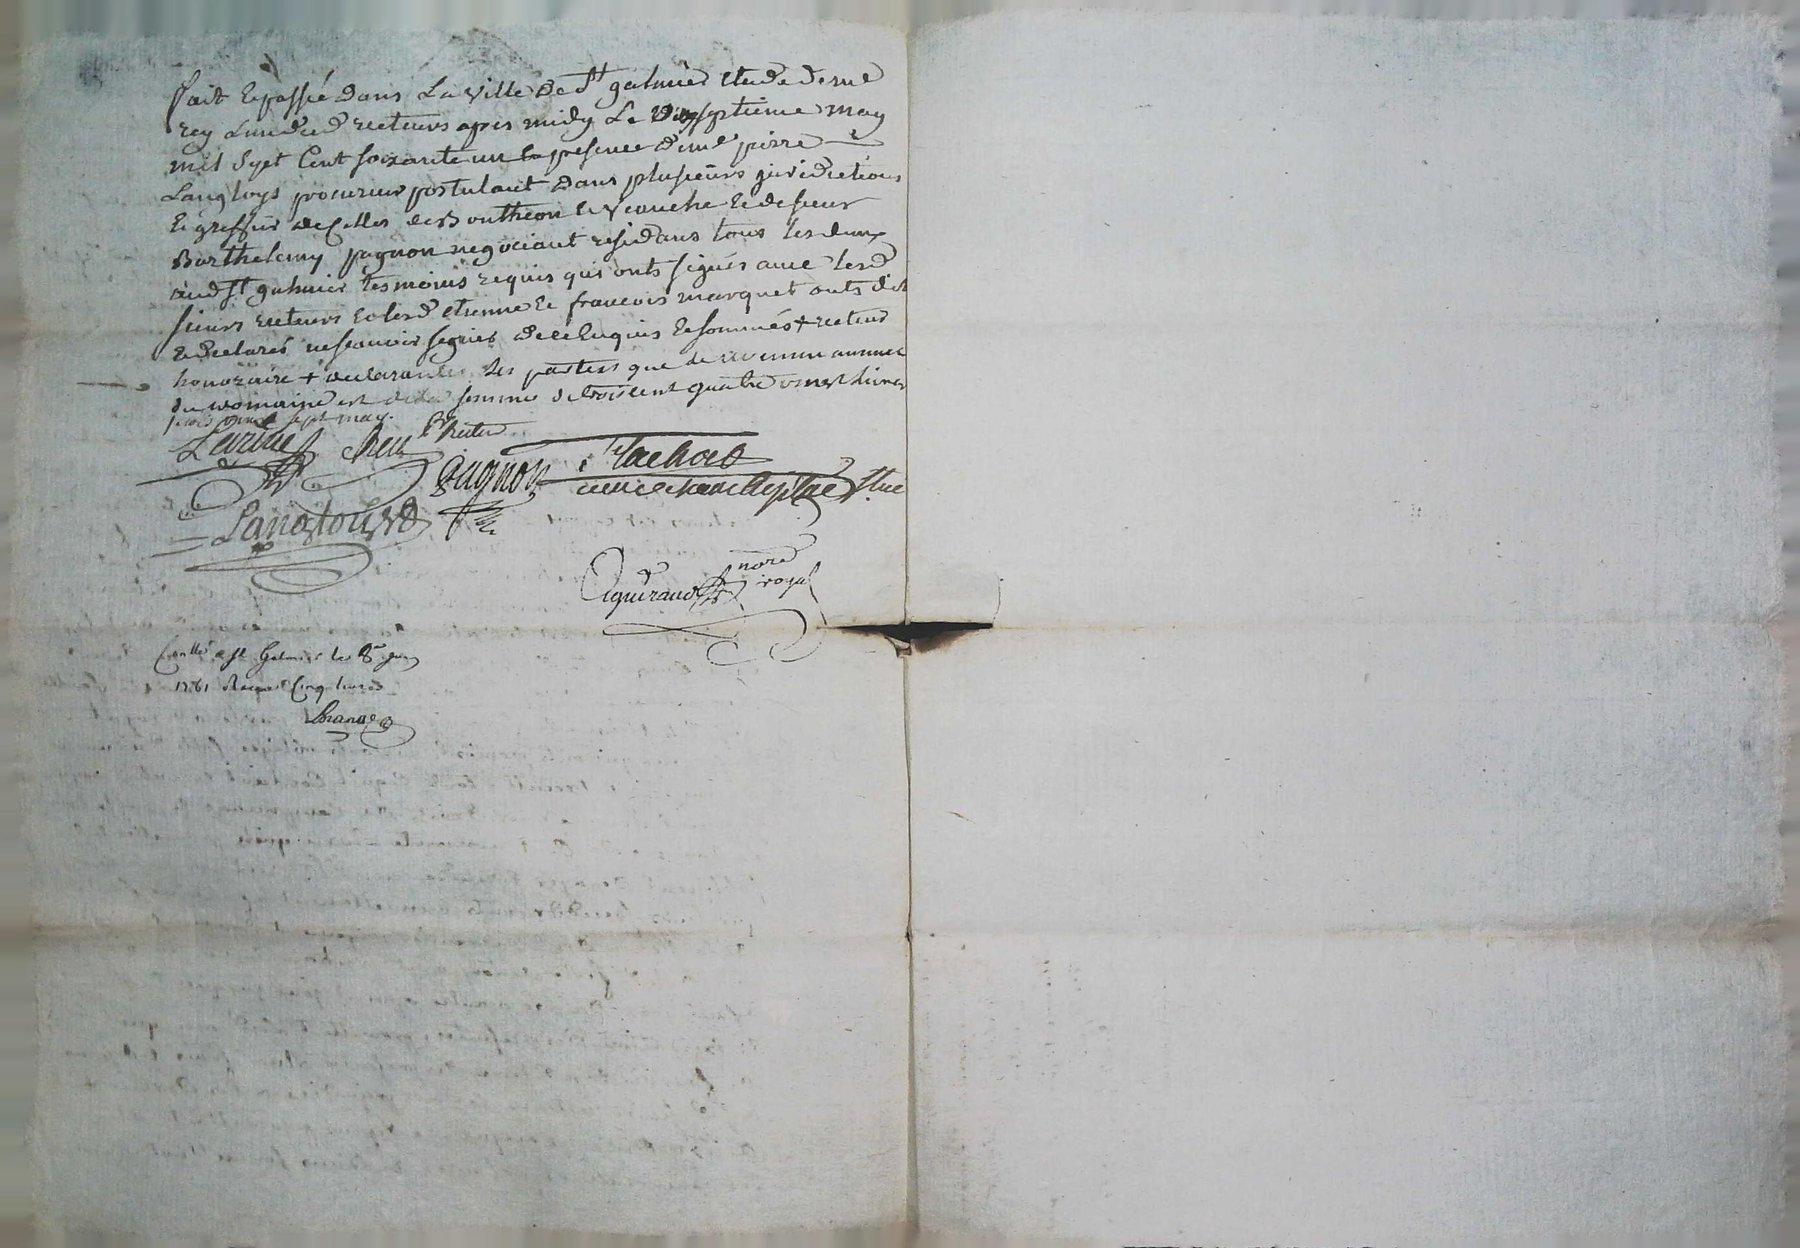 fait & passé dans La ville de St galmier Etude de me
rey Lun desd recteurs apres midy Le dixseptieme may
mil Sept Cent soixante un En presence de me pierre
Langloys procureur postulant dans plusieurs juridictions
& greffier de Celles de Bouthéon & Veauche & de sieur
Barthelemy pagnon negociant residans tous les deux
aud St galmier tesmoins requis qui onts signés avec lesd
sieurs recteurs & lesd etienne & francois marquet onts dit
& declarés ne scavoir signer de ce Enquis & sommés + recteur
honoraire + declarantes les parties que le revenu annuel
du domaine est de la somme de trois cent quatre vingt livres
sept may.
recteur
pagnon
Langloys
nore
royal
Conllé a St Galmier le 8e juin
1761 Reçu Cinq livres